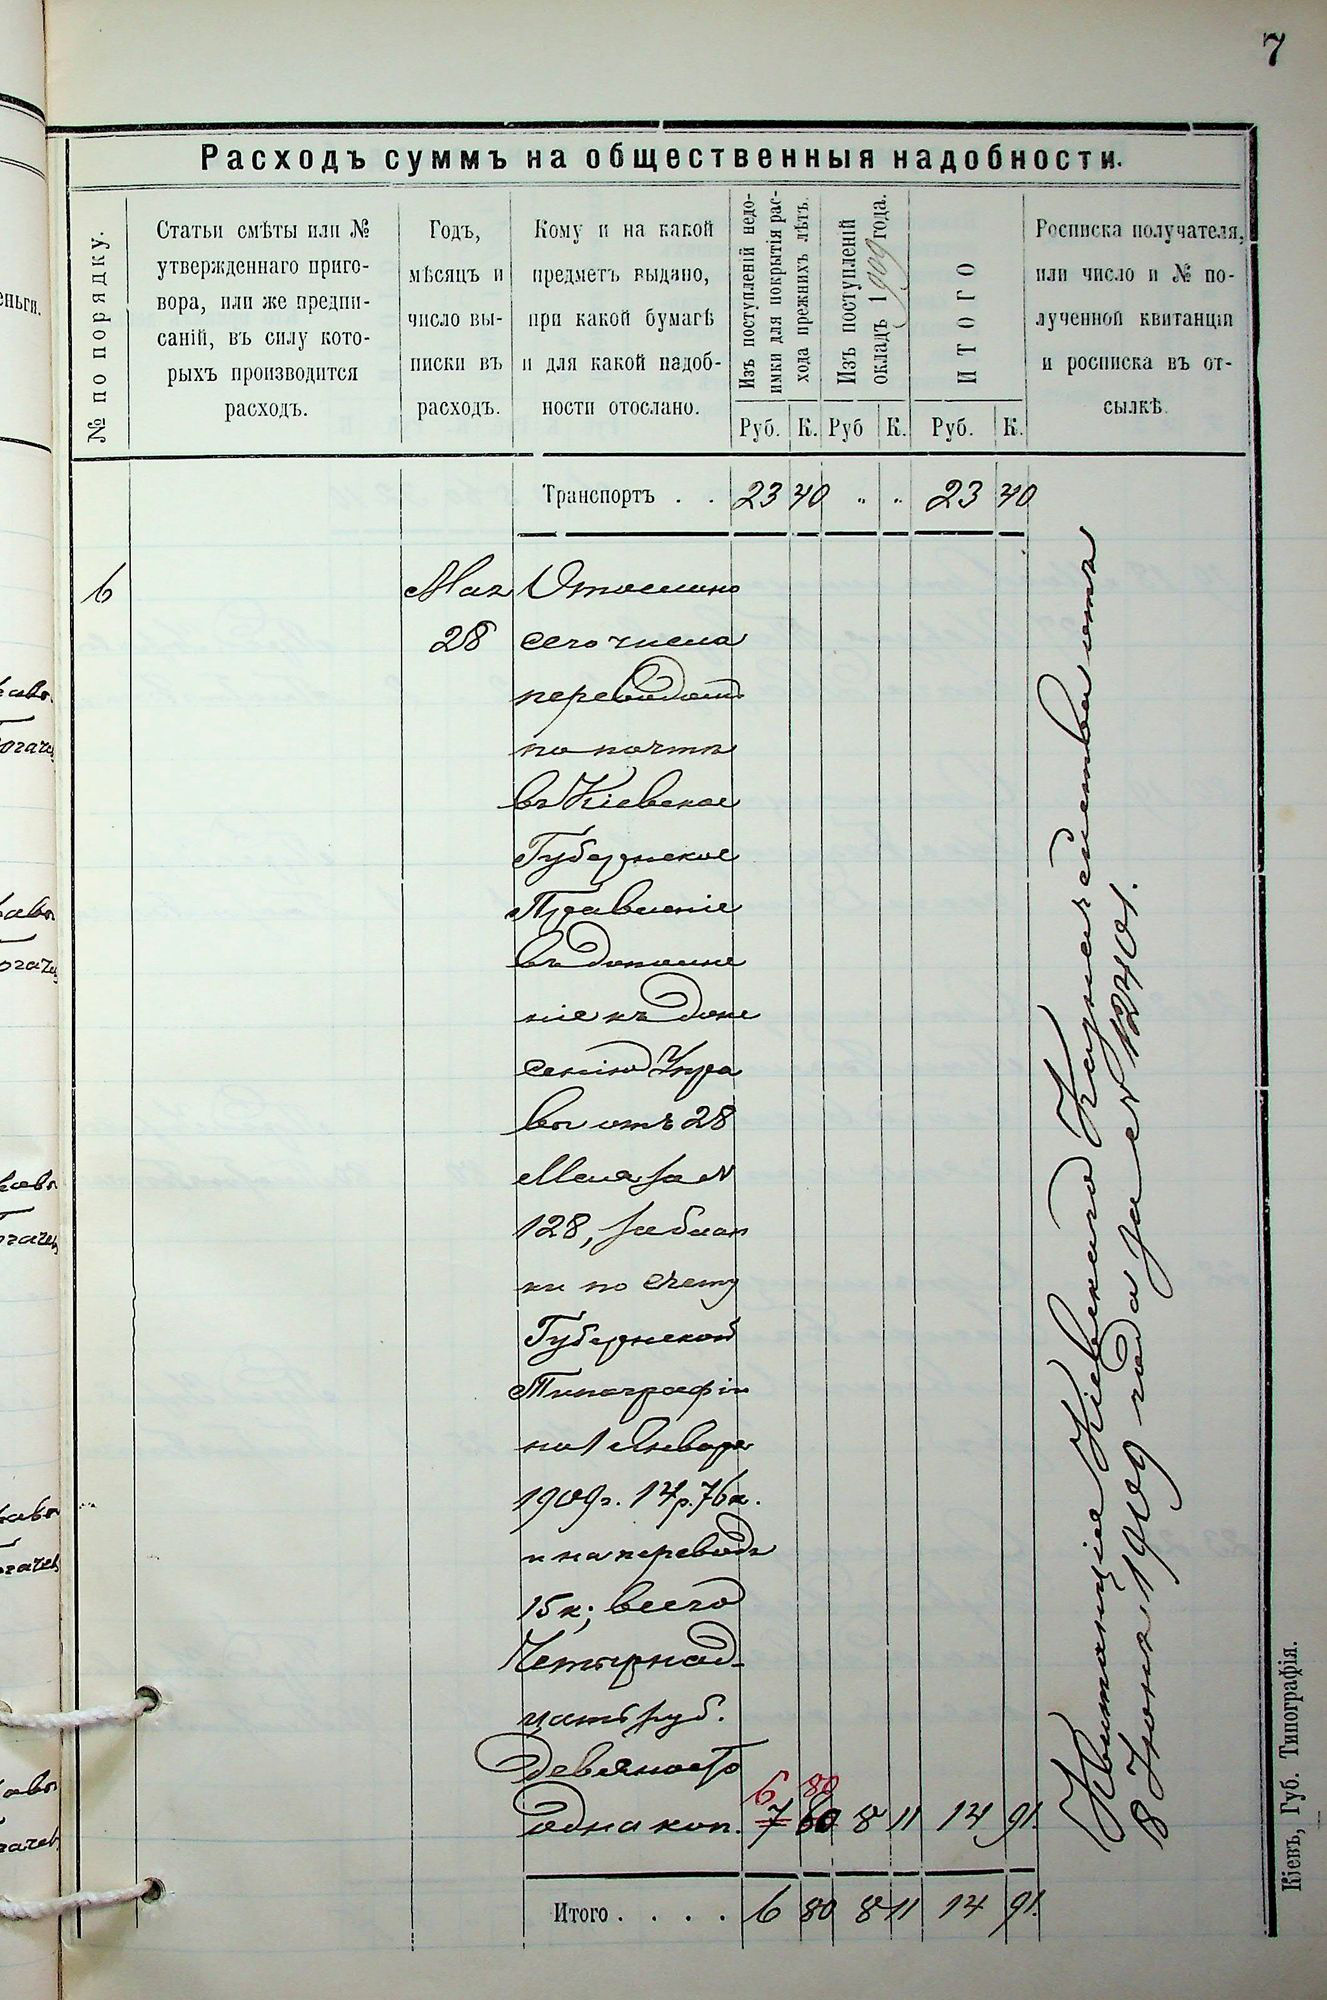 7
Расходъ суммъ на общественныя надобности.
№ по порядку.
Статьи смѣты или №
утвержденнаго приго-
вора, или же предпи-
саній, въ силу кото-
рыхъ производится
расходъ.
Годъ,
мѣсяцъ и
число вы-
писки въ
расходъ.
Кому и на какой
предметъ выдано,
при какой бумагѣ
и для какой надоб-
ности отослано.
Изъ поступленій недо-
имки для покрытія рас-
хода прежнихъ лѣтъ.
Изъ поступленій
окладъ 1909 года.
ИТОГО
Росписка получателя,
или число и № по-
лученной квитанціи
и росписка въ от-
сылкѣ.
Руб. К. Руб К. Руб. К.
Транспортъ . . 23 40 " " 23 40
6 Мая Отослано
28 сего числа
переводомъ
по почтѣ
въ Кіевское
Губернское
Правленіе
въ дополне
ніе къ доне
сенію Упра
вы отъ 28
Мая за №
128, за блан
ки по счету
Губернской
Типографіи
на 1 Января
1909 г. 14 р. 76 к.
и на переводъ
15 к; всего
Четырнад-
цать руб.
девяносто
6 80
одна коп. 7 80 8 11 14 91.
Итого . . . . 6 80 8 11 14 91.
Квитанція Кіевскаго Казначейства отъ
8 Іюня 1909 года за № 12401.
Кіевъ, Губ. Типографія.